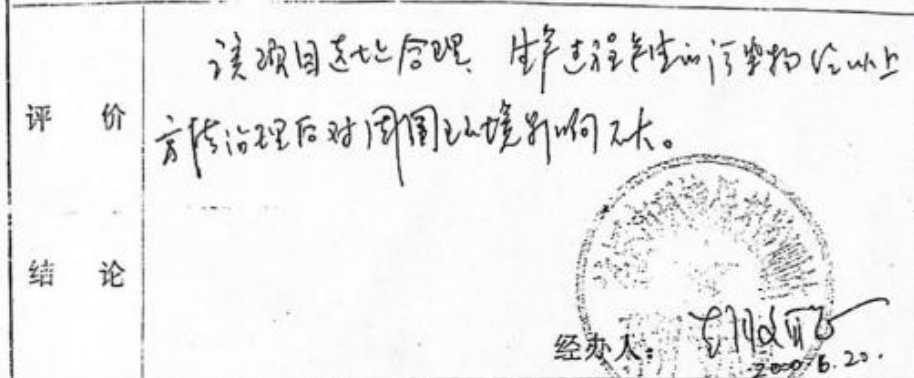 该项目选址合理、生产过程产生的污染物经以上
评 价
方法治理后对周围环境影响不大。
结 论
经办人：
2000.6.20.